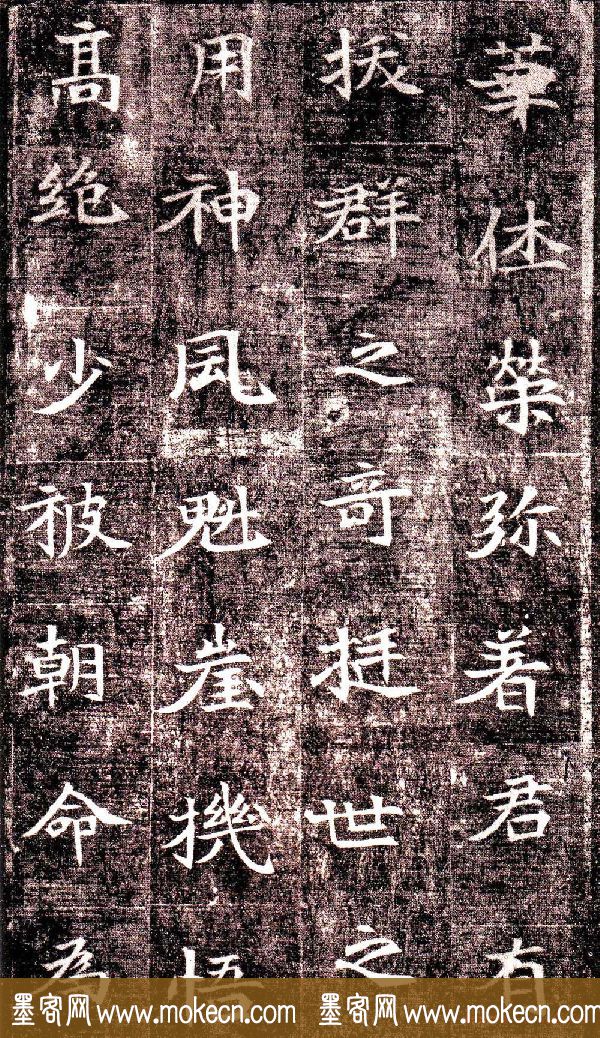 華体榮弥著君有
拔群之竒挺世之
用神風魁崖機悟
髙絶少被朝命為
墨客网 www.mokecn.com 墨客网 www.mokecn.com